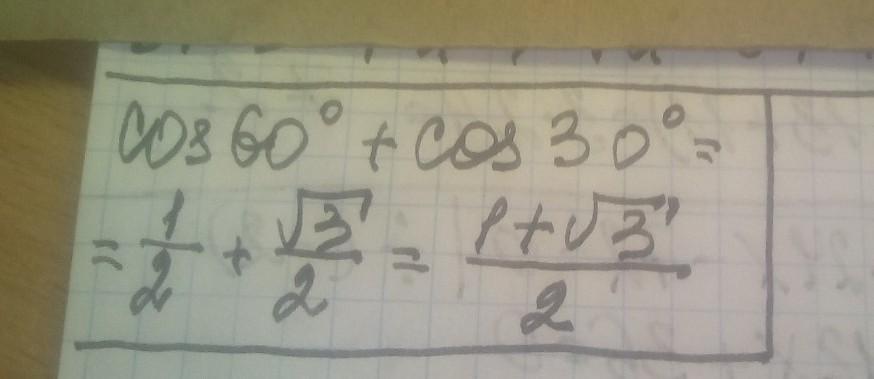 cos 60° + cos 30° =
= 1/2 + √3/2 = (1+√3)/2